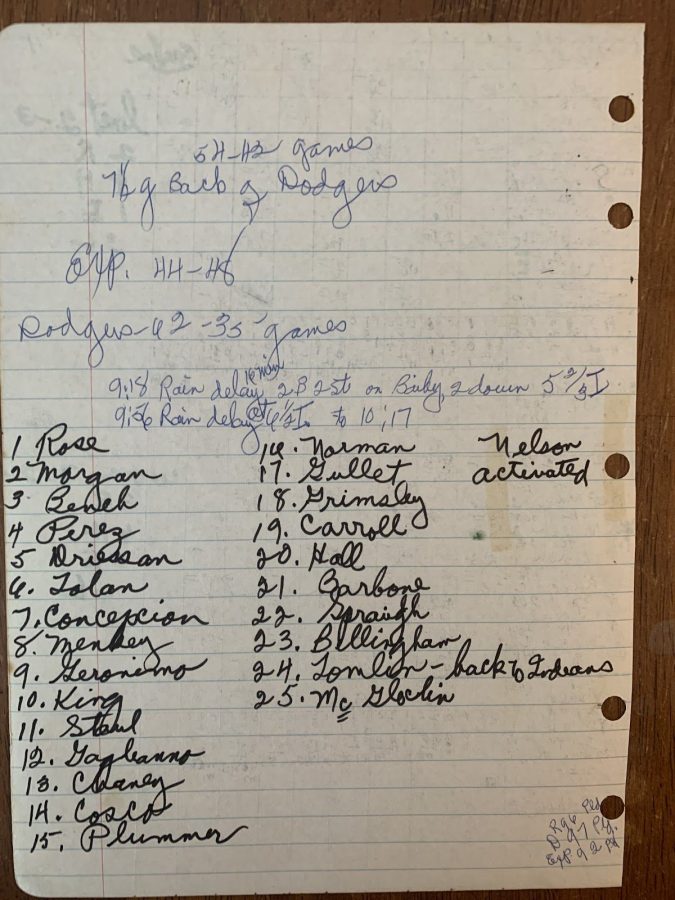 54-42 games
7½ g Back of Dodgers
Exp. 44-48
Dodgers-62-35 games
9:18 Rain delay 16 min 2B 2st on Bailey 2 down 5 2/3 I
9:56 Rain delay @ 6½ I. to 10:17
1 Rose
2 Morgan
3 Bench
4 Perez
5 Driessan
6. Tolan
7. Concepcion
8. Menkey
9. Geronimo
10. King
11. Stahl
12. Gagleanno
13. Chaney
14. Cosco
15. Plummer
16. Norman
17. Gullet
18. Grimsley
19. Carroll
20. Hall
21. Barbone
22. Spraigh
23. Billingham
24. Tomlin - back to Indians
25. Mc Gloclin
Nelson
activated
R 96 Pld
D 97 Pl.
Exp 92 Pl